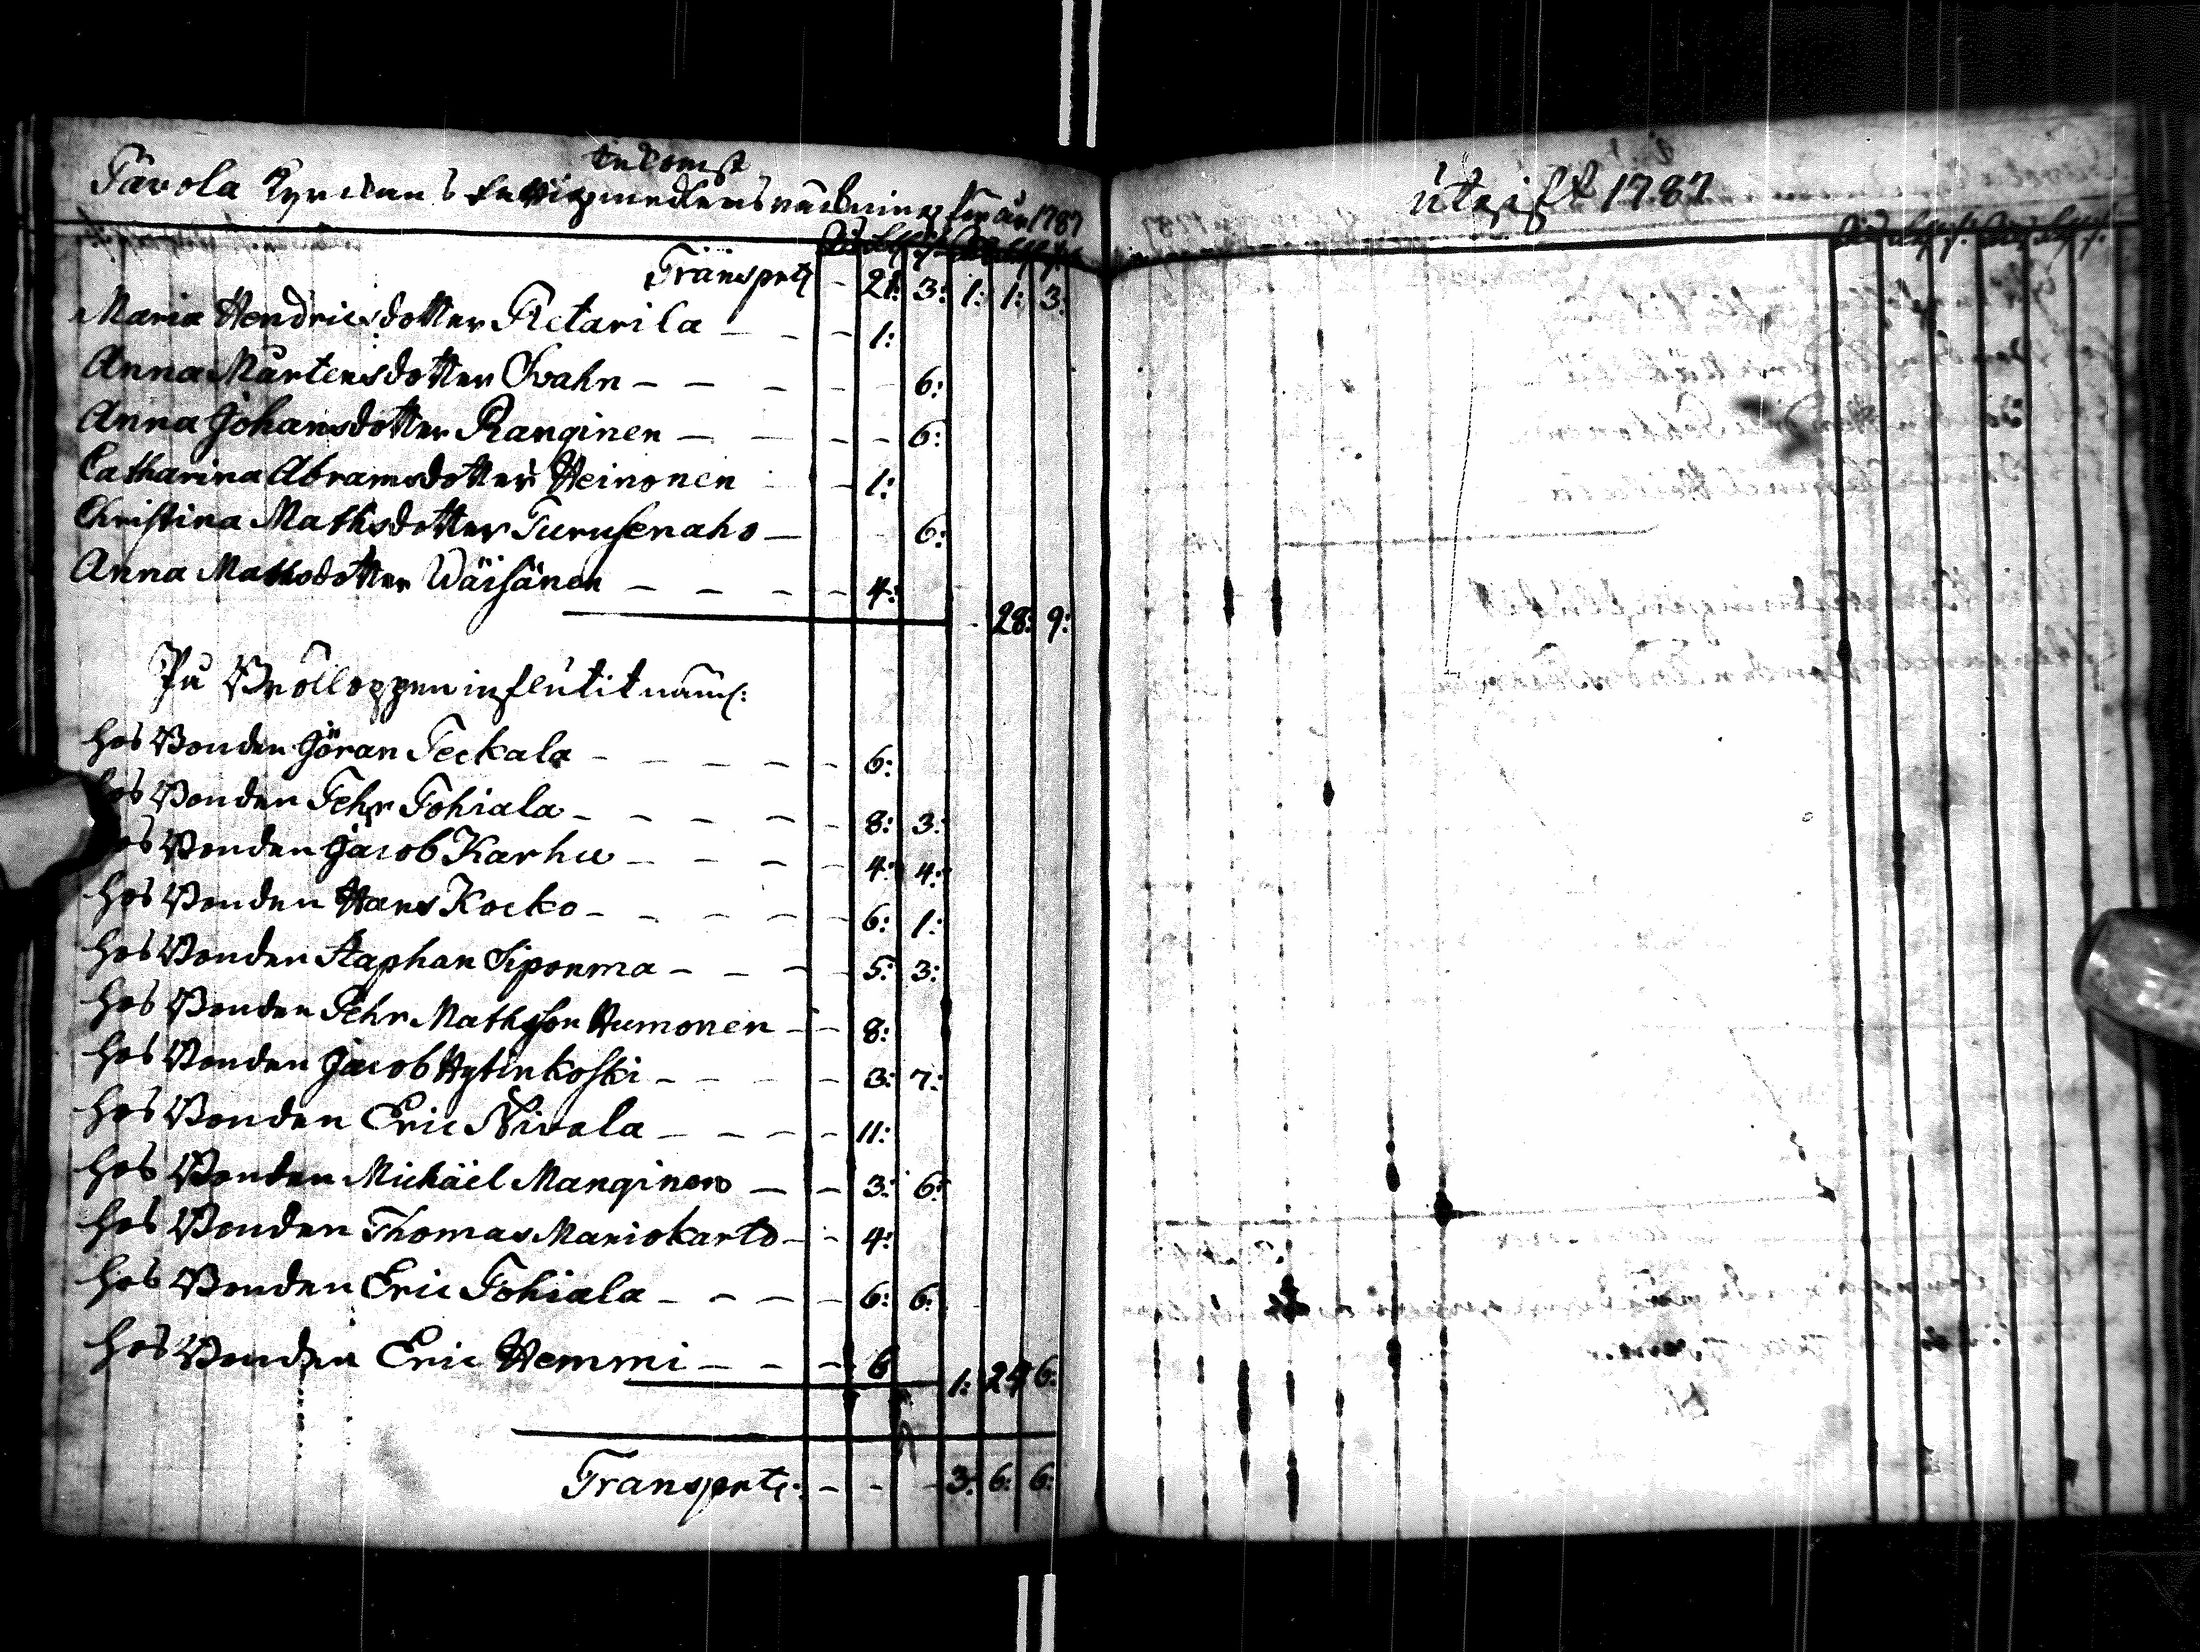 Inkomst
Pavola Kyrckans fattigmedlens räckning för år 1787
Transprt - 21: 3: 1: 1: 3:
Maria Hendricsdotter Pietarila - - - 1:
Anna Mårtensdotter Svahn - - - - 6:
Anna Johansdotter Ranginen - - - - 6:
Catharina Abramsdotter Heinonen - 1:
Christina Mathsdotter Turusenaho - 6:
Anna Mathsdotter Wäisänen - - - - 4:
- 28: 9:
På Brölloppen influtit näml:
hos Bonden Göran Teckala - - - - - 6:
hos Bonden Pehr Tohiala - - - - - 8: 3:
hos Bonden Jacob Karhu - - - - 4: 4:
hos Bonden Hans Kocko - - - - - 6: 1:
hos Bonden Staphan Siponma - - - - 5: 3:
hos Bonden Pehr Mathsson Humonen - - 8:
hos Bonden Jacob Hytinkoski - - - - 3: 7:
hos Bonden Eric Nivala - - - - 11:
hos Bonden Michäel Manginen - - 3: 6:
hos Bonden Thomas Mariokarto - - 4:
hos Bonden Eric Tohiala - - - - 6: 6:
hos Bonden Eric Hemmi - - - 6
1: 24 6:
Transprt: - - - 3: 6: 6:
Utgift 1787